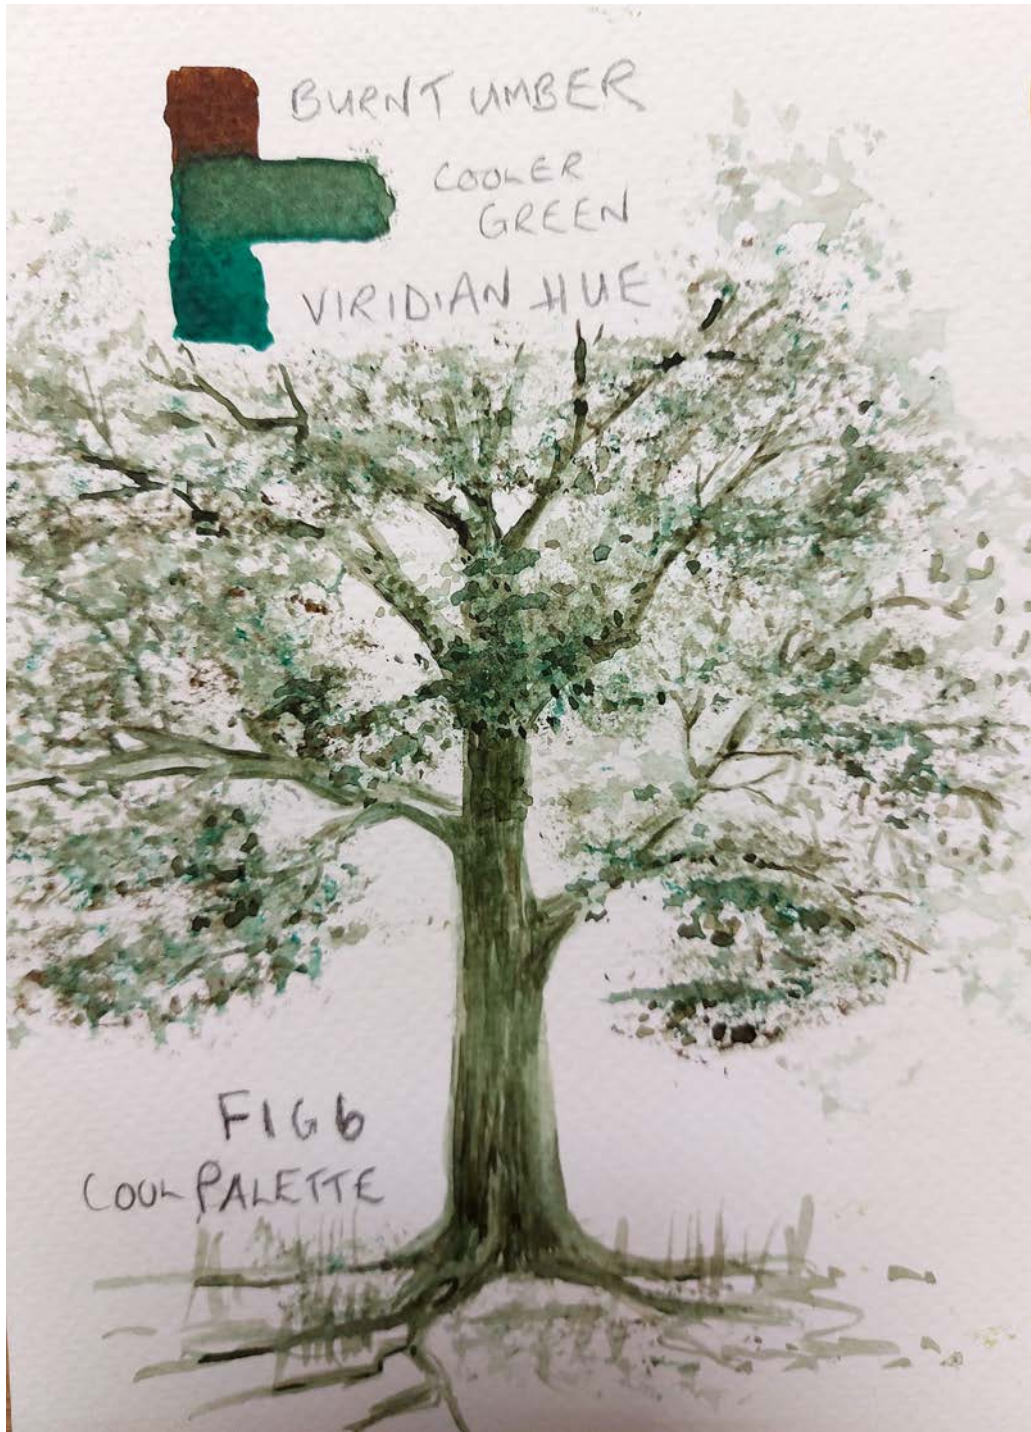 BURNT UMBER
COOLER
GREEN
VIRIDIAN HUE
FIG 6
COOL PALETTE